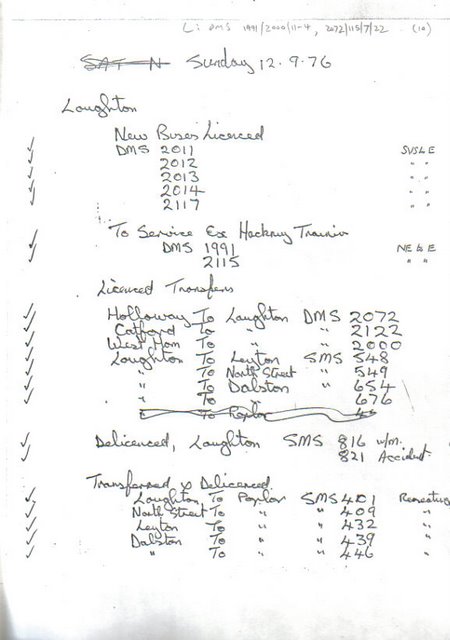 L: DMS 1991/2000/11-4, 2072/115/7/22 (10)
SAT N Sunday 12.9.76
Loughton
New Buses Licenced
DMS 2011 SVSLE
2012 " "
2013 " "
2014 " "
2117 " "
To Service Ex Hackney Trainer
DMS 1991 NE & E
2115 " "
Licenced Transfers
Holloway To Loughton DMS 2072
Catford To " " 2122
West Ham To " " 2000
Loughton To Leyton SMS 548
" To North Street " 549
" To Dalston " 654
" To " 676
" To Poplar
Delicenced, Loughton SMS 816 w/m.
821 Accident
Transferred & Delicenced
Loughton To Poplar SMS 401
North Street To " " 409 "
Leyton To " " 432 "
Dalston To " " 439 "
" To " " 446 "